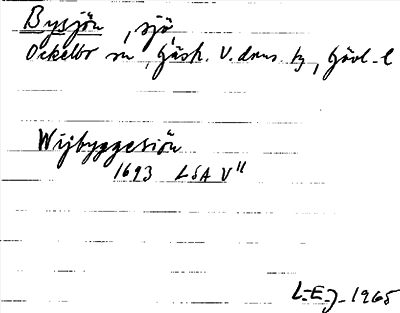 Bysjön, sjö
Ockelbo sn, Gästr. V. doms. tg, Gävl. l
Wijbyggesiön
1693 LSA V"
L-E-J- 1965